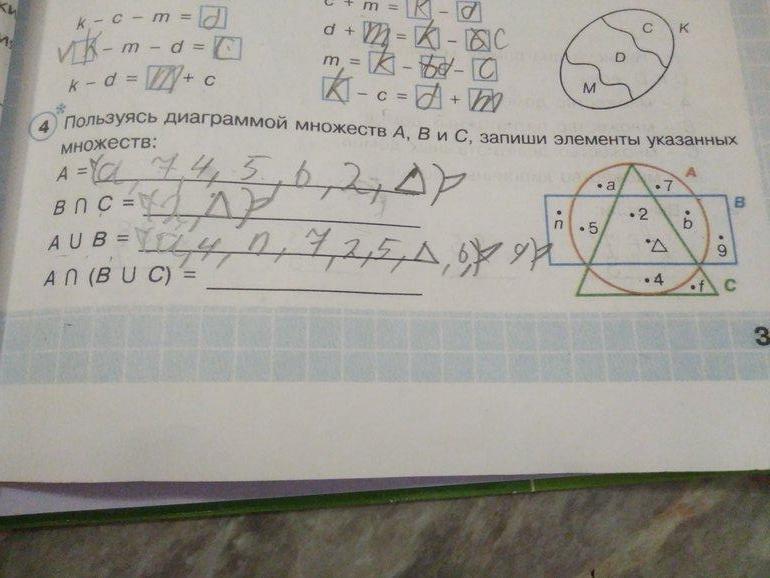 k - c - m = d
c + m = k - d
k - m - d = c
d + m = k - c
k - d = m + c
m = k - d - c
k - c = d + m
C K
D
M
4* Пользуясь диаграммой множеств A, B и C, запиши элементы указанных
множеств:
A = {a, 7, 4, 5, b, 2, Δ}
B ∩ C = {2, Δ}
A ∪ B = {a, 4, n, 7, 2, 5, Δ, b, 9}
A ∩ (B ∪ C) =
a 7 A
n 5 2 b B
Δ 9
4 f C
3